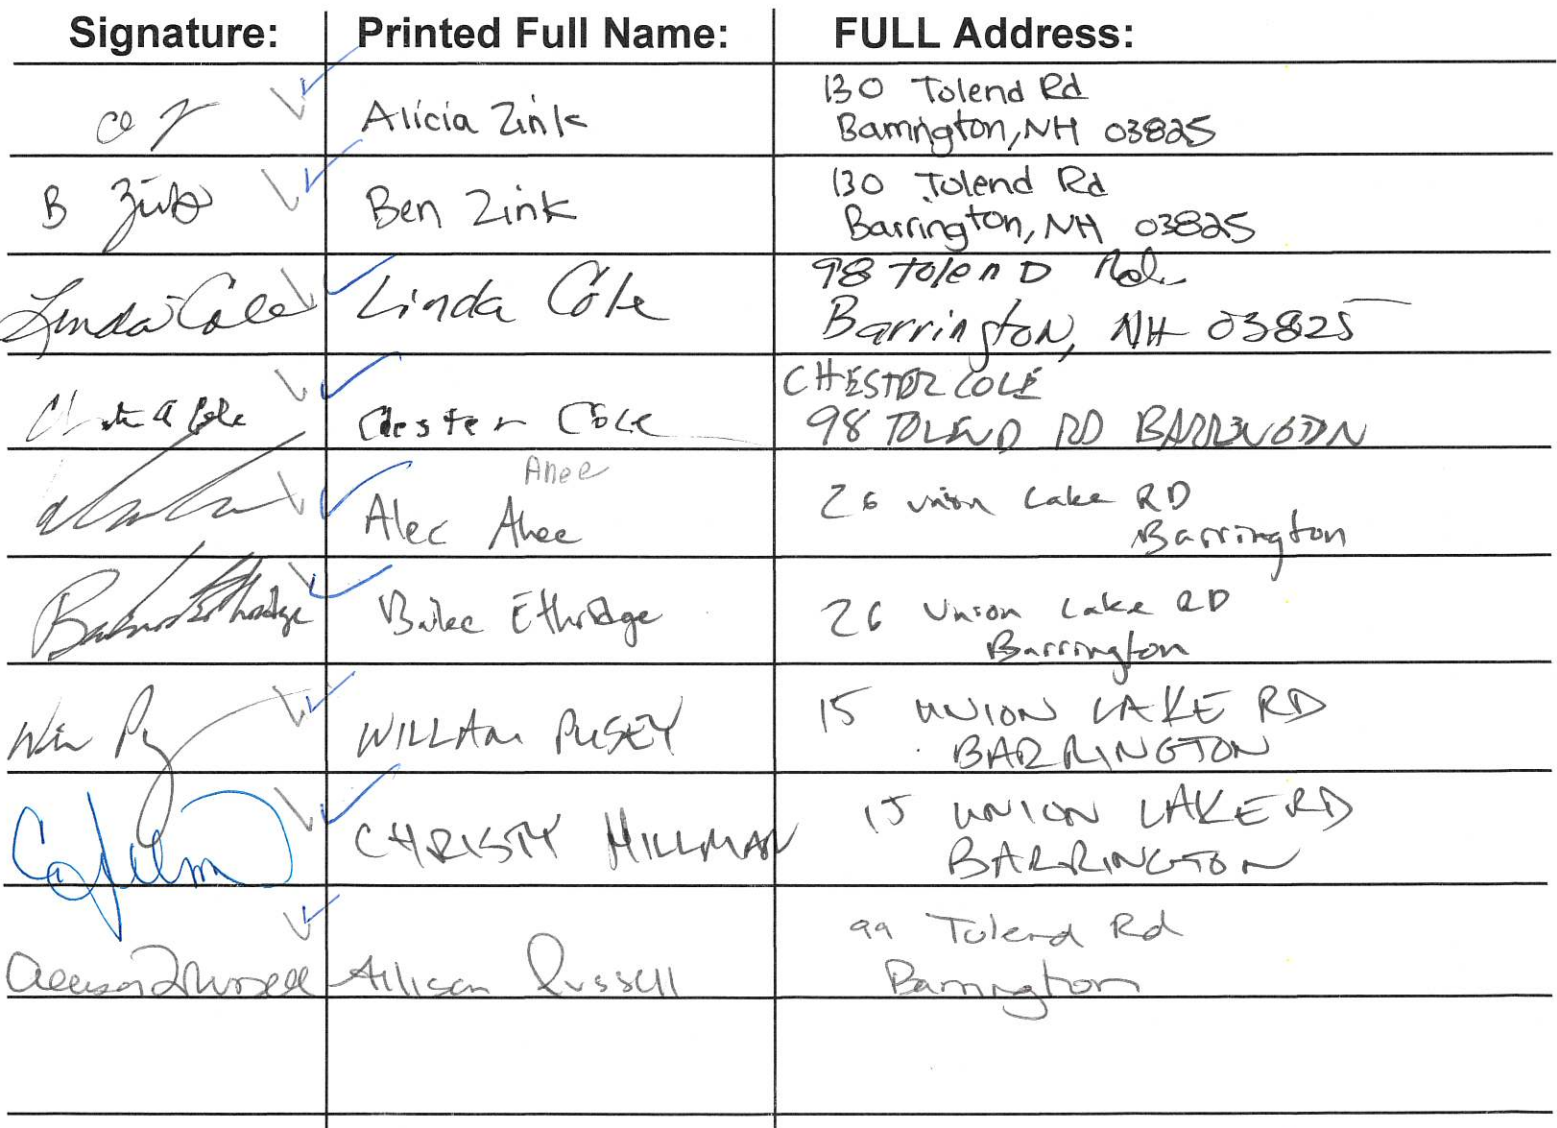 Signature: Printed Full Name: FULL Address:
Alicia Zink 130 Tolend Rd
Barrington, NH 03825
B Zink Ben Zink 130 Tolend Rd
Barrington, NH 03825
Linda Cole Linda Cole 98 Tolend Rd.
Barrington, NH 03825
CHESTER COLE
Chester Cole 98 TOLEND RD BARRINGTON
Ahee
Alec Ahee 26 Union Lake RD
Barrington
Ethridge 26 Union Lake RD
Barrington
WILLIAM PUSEY 15 UNION LAKE RD
BARRINGTON
CHRISTY HILLMAN 15 UNION LAKE RD
BARRINGTON
99 Tolend Rd
Allison Russell Allison Russell Barrington